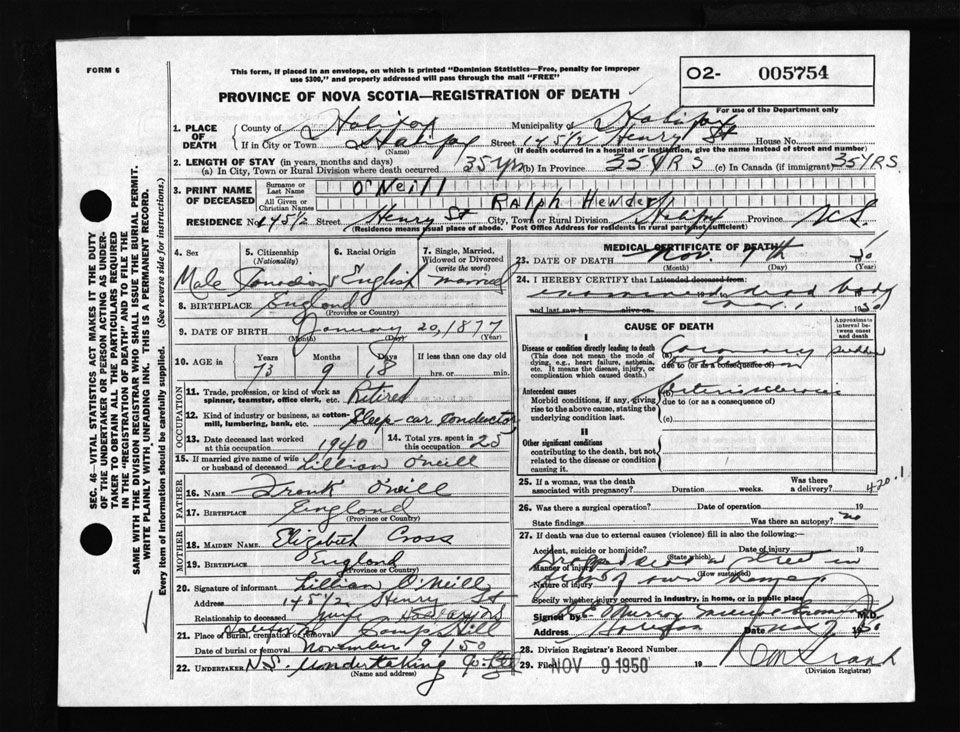 FORM 6
This form, if placed in an envelope, on which is printed "Dominion Statistics—Free, penalty for improper
use $300," and properly addressed will pass through the mail "FREE"
O2- 005754
PROVINCE OF NOVA SCOTIA—REGISTRATION OF DEATH
For use of the Department only
1. PLACE OF DEATH County of Halifax Municipality of Halifax
If in City or Town Halifax Street 145 1/2 Henry St House No.
(Name) (If death occurred in a hospital or institution, give the name instead of street and number)
2. LENGTH OF STAY (in years, months and days)
(a) In City, Town or Rural Division where death occurred 35 yrs (b) In Province 35 YRS (c) In Canada (if immigrant) 35 YRS
3. PRINT NAME OF DECEASED Surname or Last Name O'Neill
All Given or Christian Names Ralph
RESIDENCE No. 145 1/2 Street Henry St City, Town or Rural Division Halifax Province N.S.
(Residence means usual place of abode. Post Office Address for residents in rural parts not sufficient)
4. Sex 5. Citizenship (Nationality) 6. Racial Origin 7. Single, Married, Widowed or Divorced (write the word)
Male Canadian English Married
8. BIRTHPLACE England
(Province or Country)
9. DATE OF BIRTH January 20, 1877
(Month) (Day) (Year)
10. AGE in Years Months Days If less than one day old
73 9 18 hrs. or min.
OCCUPATION
11. Trade, profession, or kind of work as spinner, teamster, office clerk, etc. Retired
12. Kind of industry or business, as cotton-mill, lumbering, bank, etc. Sleep car conductor
13. Date deceased last worked at this occupation 1940 14. Total yrs. spent in this occupation 25
15. If married give name of wife or husband of deceased Lillian O'Neill
FATHER
16. NAME Frank O'Neill
17. BIRTHPLACE England
(Province or Country)
MOTHER
18. MAIDEN NAME Elizabeth Cross
19. BIRTHPLACE England
(Province or Country)
20. Signature of informant Lillian O'Neill
Address 145 1/2 Henry St
Relationship to deceased Wife
21. Place of Burial, cremation or removal Camp Hill
Date of burial or removal November 9/50
22. UNDERTAKER N.S. Undertaking Co. Ltd
(Name and address)
MEDICAL CERTIFICATE OF DEATH
23. DATE OF DEATH Nov. 7th 1950
(Month) (Day) (Year)
24. I HEREBY CERTIFY that I attended deceased from:
examined dead body
and last saw h alive on 1950
CAUSE OF DEATH
Approximate interval between onset and death
I
Disease or condition directly leading to death (a) Coronary sudden
(This does not mean the mode of dying, e.g., heart failure, asthenia, etc. It means the disease, injury, or complication which caused death.) due to (or as a consequence of)
Antecedent causes (b) Arteriosclerosis
Morbid conditions, if any, giving rise to the above cause, stating the underlying condition last. due to (or as a consequence of)
(c)
II
Other significant conditions contributing to the death, but not related to the disease or condition causing it.
25. If a woman, was the death associated with pregnancy? Duration weeks. Was there a delivery? 420.1
26. Was there a surgical operation? Date of operation 19
State findings Was there an autopsy? no
27. If death was due to external causes (violence) fill in also the following:—
Accident, suicide or homicide? Date of injury 19
(State which)
Manner of injury Dropped dead on street in
(How sustained)
Nature of injury front of own home
Specify whether injury occurred in industry, in home, or in public place
Signed by Murray Medical Examiner M.D.
Address Halifax Date Nov 7 1950
28. Division Registrar's Record Number
29. Filed NOV 9 1950 19
(Division Registrar)
SEC. 46—VITAL STATISTICS ACT MAKES IT THE DUTY
OF THE UNDERTAKER OR PERSON ACTING AS UNDER-
TAKER TO OBTAIN ALL THE PARTICULARS REQUIRED
IN THE "REGISTRATION OF DEATH" AND TO FILE THE
SAME WITH THE DIVISION REGISTRAR WHO SHALL ISSUE THE BURIAL PERMIT.
WRITE PLAINLY WITH UNFADING INK. THIS IS A PERMANENT RECORD.
Every item of information should be carefully supplied. (See reverse side for instructions.)